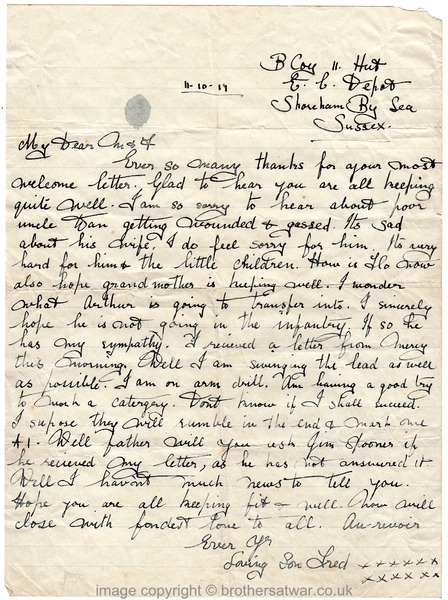 B Coy 11 Hut
E. C. Depot
Shoreham By Sea
Sussex.
11-10-17
My Dear M & F
Ever so many thanks for your most
welcome letter. Glad to hear you are all keeping
quite well. I am so sorry to hear about poor
uncle Dan getting wounded & gassed. Its sad
about his wife. I do feel sorry for him. Its very
hard for him & the little children. How is Flo now
also hope grandmother is keeping well. I wonder
what Arthur is going to transfer into. I sincerely
hope he is not going in the infantry. If so he
has my sympathy. I recieved a letter from Mercy
this morning. Well I am swinging the lead as well
as possible. I am on arm drill. Am having a good try
to work a catergary. Dont know if I shall succeed.
I supose they will rumble in the end & mark me
A1. Well father will you ask Jim Spooner if
he recieved my letter, as he has not answered it
Well I havont much news to tell you.
Hope you are all keeping fit & well. Now will
close with fondest love to all. Au-revoir
Ever Yr
Loving Son Fred xxxxxx
xxxx xx
image copyright © brothersatwar.co.uk